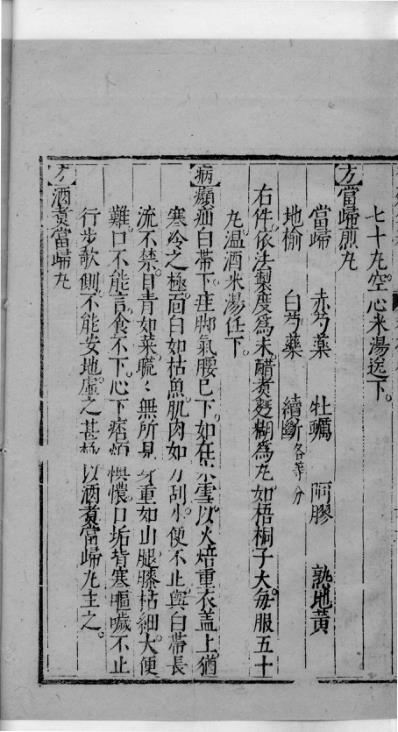 七十丸。空心米湯送下。
方當歸煎丸
當歸 赤芍藥 牡蠣 阿膠 熟地黃
地榆 白芍藥 續斷各等分
右件依法製度爲末。醋煮麪糊爲丸如梧桐子大。每服五十
丸。溫酒米湯任下。
病癩疝白帶下。疰脚氣腰已下。如在氷雪。以火焙重衣盖上。猶
寒冷之極。面白如枯魚。肌肉如刀刮。小便不止。與白帶長
流不禁。目青如菜。䀮〻無所見。身重如山。腿膝枯細。大便
難。口不能言。食不下。心下痞煩懊憹。口垢背寒。嘔噦不止
行步欹側。不能安地。虛之甚 以酒煮當歸丸主之。
方酒煮當歸丸